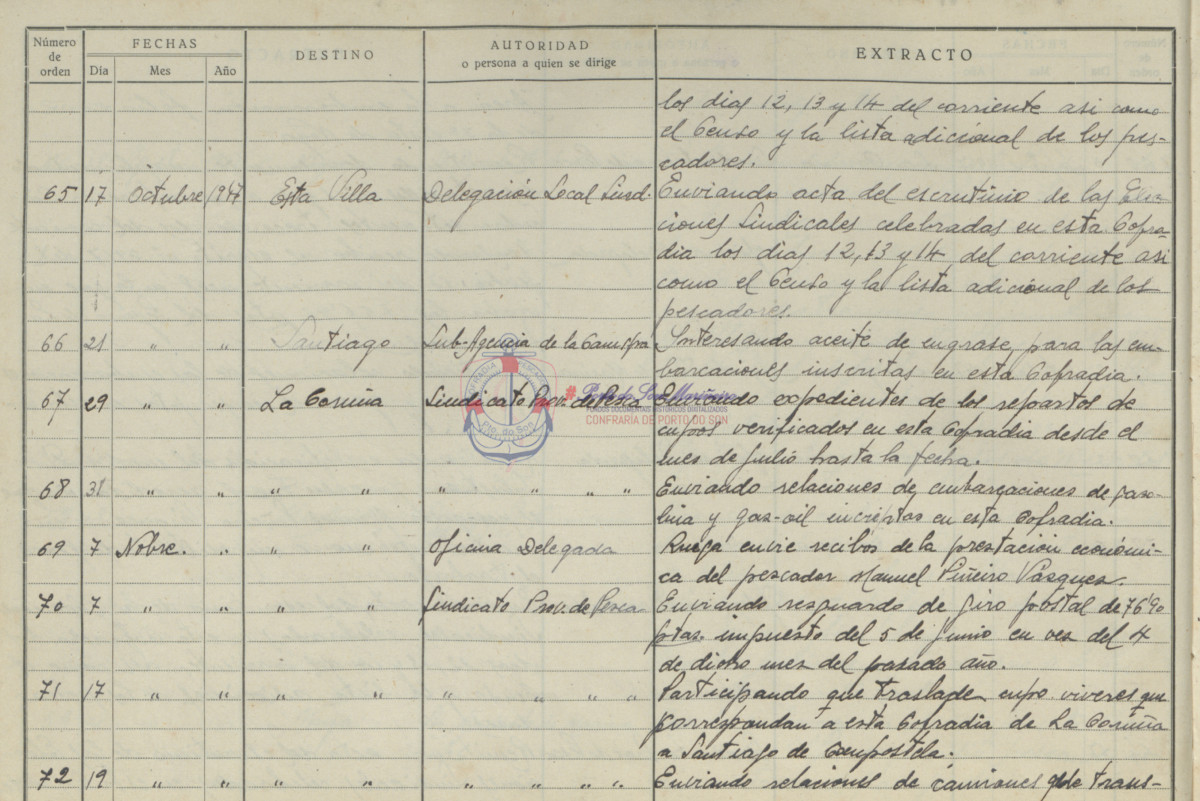 Número de orden FECHAS DESTINO AUTORIDAD o persona a quien se dirige EXTRACTO
Día Mes Año
los dias 12, 13 y 14 del corriente asi como
el Censo y la lista adicional de los pes-
cadores.
65 17 Octubre 1947 Esta Villa Delegación Local Sind. Enviando acta del escrutinio de las Elec-
ciones Sindicales celebradas en esta Cofra-
dia los dias 12, 13 y 14 del corriente asi
como el Censo y la lista adicional de los
pescadores.
66 21 " " Santiago Sub-Agencia de la Campsa Interesando aceite de engrase para las em-
barcaciones inscritas en esta Cofradia.
67 29 " " La Coruña Sindicato Prov. de Pesca Enviando expedientes de los repartos de
cupos verificados en esta Cofradia desde el
mes de Julio hasta la fecha.
68 31 " " " " " " " " Enviando relaciones de embarcaciones de gaso-
lina y gas-oil en esta Cofradia.
69 7 Nobre. " " " Oficina Delegada Ruega envie recibos de la prestación económi-
ca del pescador Manuel Piñeiro Vásquez.
70 7 " " " " Sindicato Prov. de Pesca Enviando resguardo de giro postal de 76'90
ptas. impuesto del 5 de Junio en vez del 4
de dicho mes del pasado año.
71 17 " " " " " " " " Participando que traslade cupo viveres que
correspondan a esta Cofradia de La Coruña
a Santiago de Compostela.
72 19 " " " " " " " " Enviando relaciones de camiones que trans-
COFRADIA PESCADORES
Pto. do Son
FONDOS DOCUMENTAIS HISTÓRICOS DIGITALIZADOS
CONFRARÍA DE PORTO DO SON